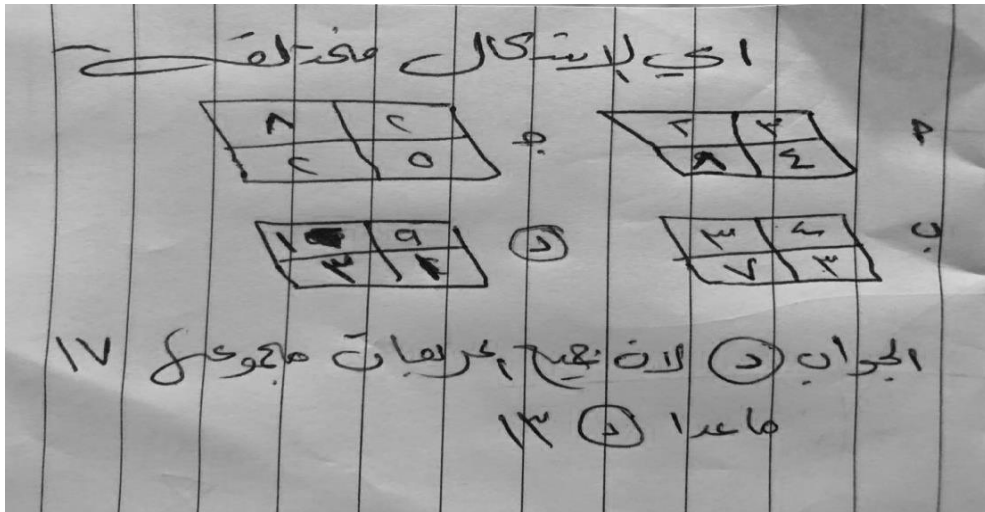 اي الاشكال مختلف
أ ٣ ٢ ج ٢ ٨
٤ ٨ ٥ ٢
ب ٤ ٣ د ٩ ١
٣ ٧
الجواب د لان جميع المربعات مجموع ١٧
ماعدا د ١٣